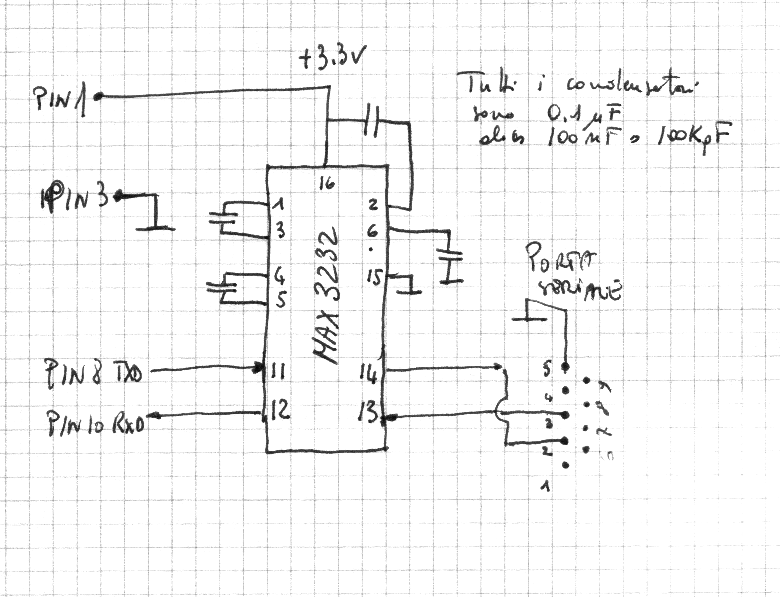 +3.3V
PIN 1
Tutti i condensatori
sono 0.1µF
alias 100nF o 100KpF
16
PIN 3
1
2
3
6
4
15
5
MAX3232
PORTA
SERIALE
PIN 8 TXD
11
14
5
9
4
8
PIN 10 RXD
12
13
3
7
2
6
1